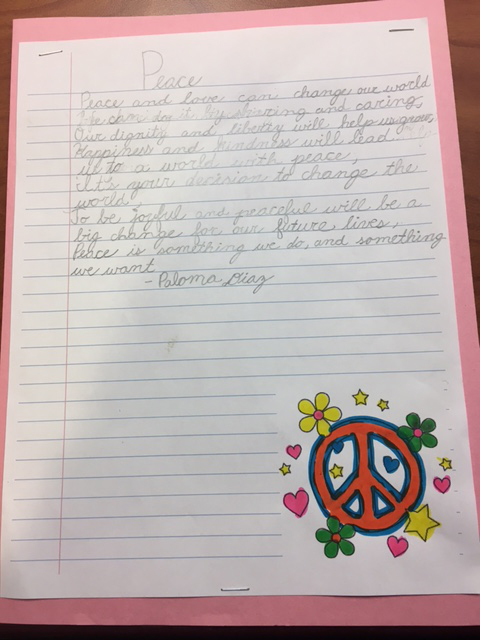 Peace
Peace and love can change our world
We can do it by sharing and caring,
Our dignity and liberty will help us grow,
Happiness and kindness will lead
us to a world with peace,
it's your decision to change the
world,
To be joyful and peaceful will be a
big change for our future lives,
Peace is something we do, and something
we want
- Paloma Diaz